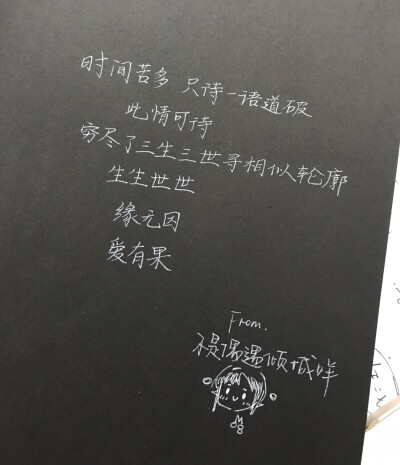 时间苦多 只诗一语道破
此情可待
穷尽了三生三世寻相似轮廓
生生世世
缘无因
爱有果
From.
不是偶遇倾城咩